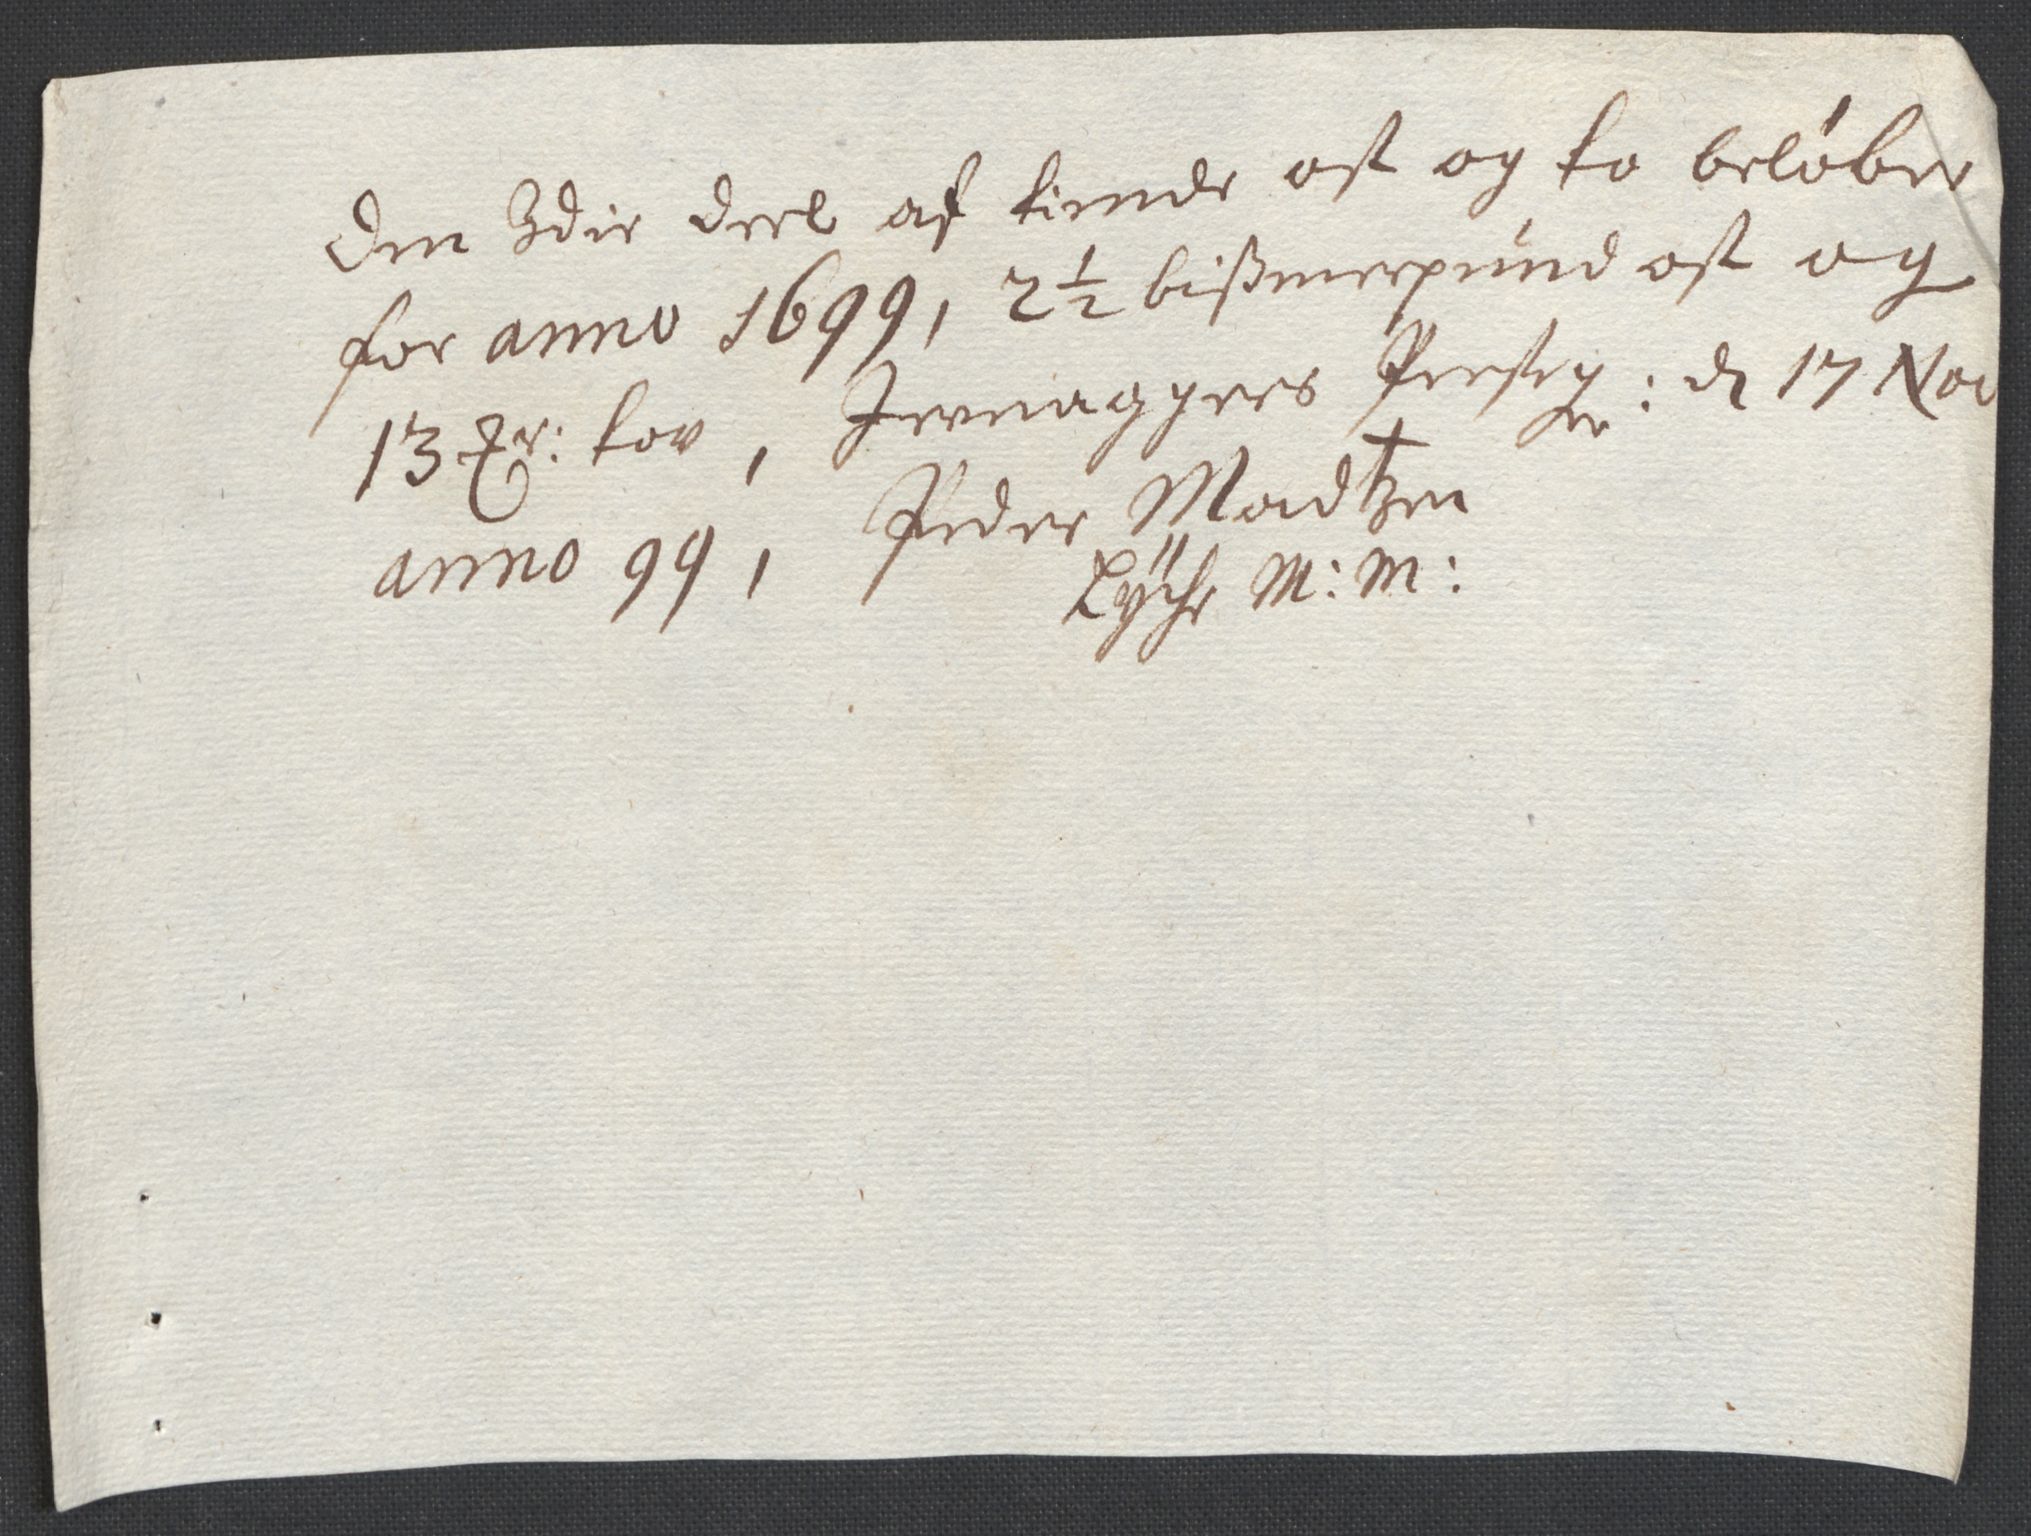 Den 3die deel af tiende ost og to beløber
for anno 1699, 2½ bißmerpund ost og
13 tov, Præste: d 17 Nov
anno 99, Peder Madtzen
Lÿche M: M: